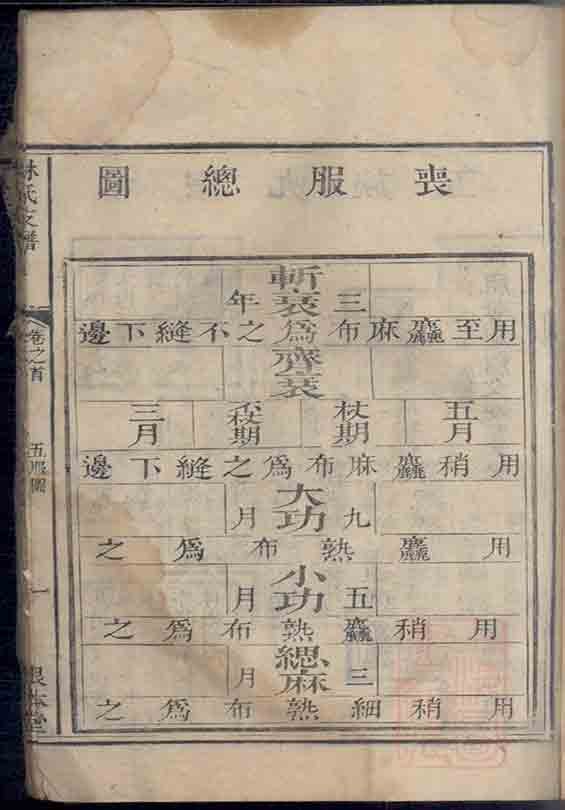 喪服總圖
斬衰
三年
用至麤麻布為之不縫下邊
齊衰
五月 杖期 不杖期 三月
用稍麤麻布為之縫下邊
大功
九月
用麤熟布為之
小功
五月
用稍麤熟布為之
緦麻
三月
用稍細熟布為之
林氏支譜
卷之首
五服圖
一